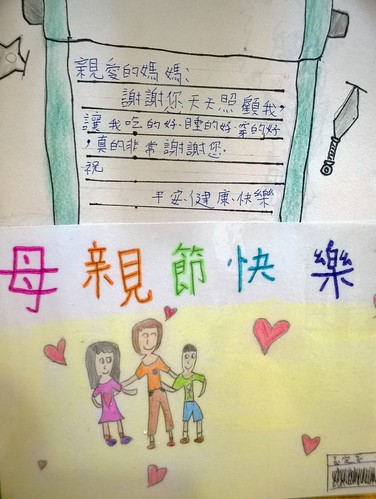 親愛的媽媽:
謝謝您天天照顧我,
讓我吃的好、睡的好、穿的好
,真的非常謝謝您.
祝
平安、健康、快樂
母親節快樂